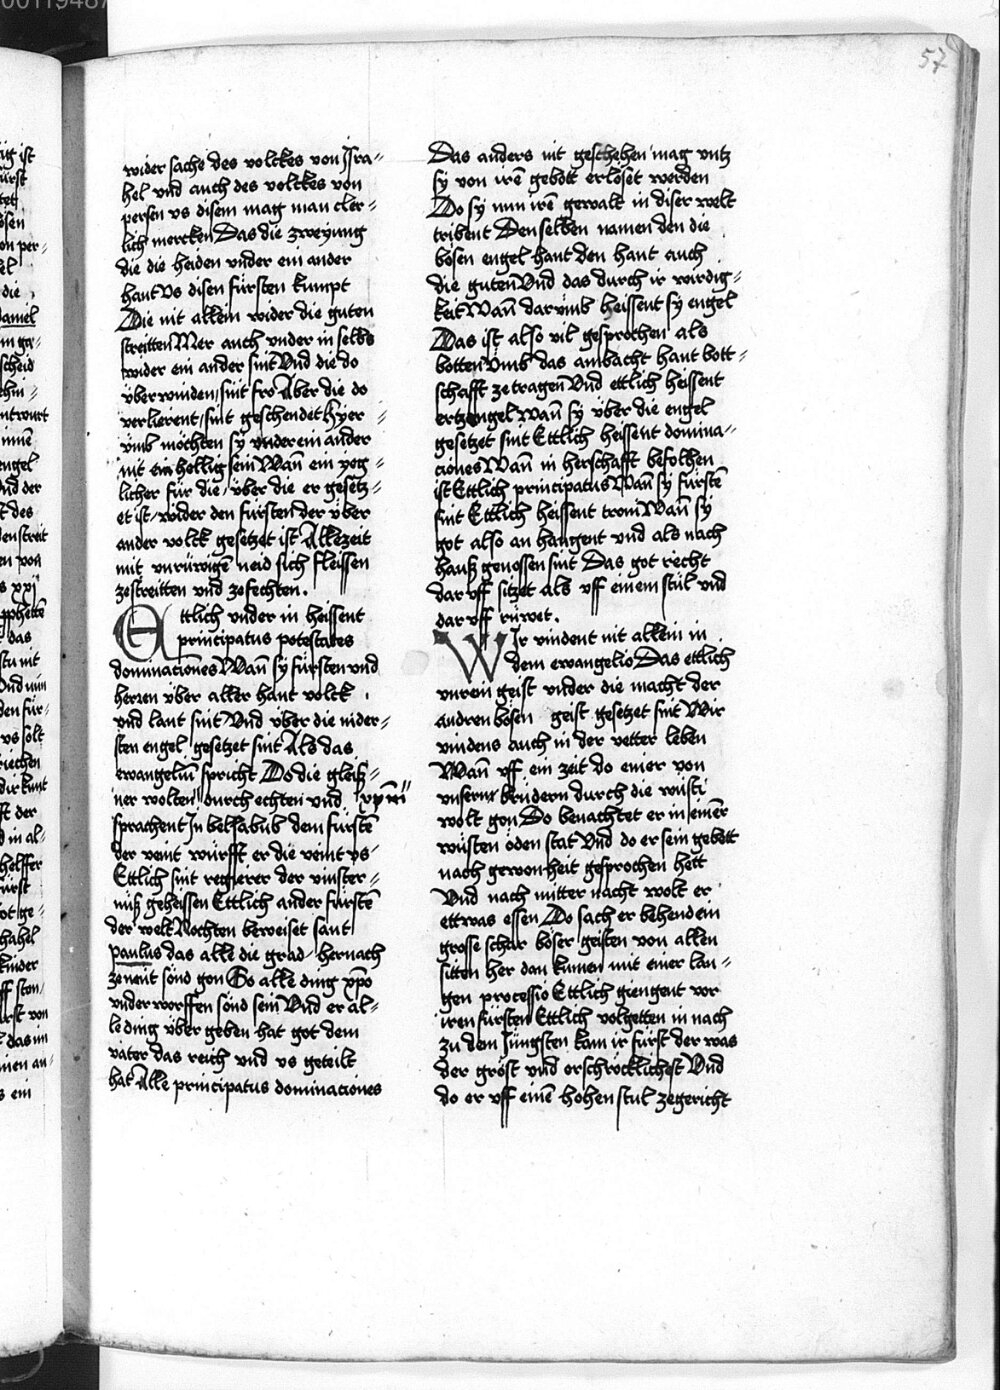 57
wider sache des volckes von Jsra-
hel vnd auch des volckes von
persen vs disem mag man cler-
lich mercken Das die zweyung
die die heiden vnder ein ander
hant Vs disen fürsten kumpt
Die nit allein wider die guten
streitten Mer auch vnder in selbs
wider ein ander sint Vnd die do
überwinden sint fro Aber die do
verlierent sint geschendet Hyer-
vmb möchten sy vnderein ander
nit ein hellig sein Wañ ein yeg-
licher für die über die er gesetz-
et ist wider den fürsten der über
ander volck gesetzet ist Allezeit
mit vnrüwigē neid sich fleissen
zestreitten vnd zefechten.
Ettlich vnder in heissent
principatus potestates
dominaciones Wañ sy fürsten vnd
herren über aller hant volck
vnd lant sint Vnd über die nider-
sten engel gesetzet sint Als das
ewangeliū spricht Do die gleiß-
ner wolten durch echten vnd
sprachent Jn belsabub dem fürstē
der veint würfft er die veint vs
Ettlich sint regierer der vinster-
niß geheissen Ettlich ander fürstē
der welt Nochten beweiset sant
paulus das alle die grad hernach
zenent sönd gon So alle ding xp̄o
vnderworffen sönd sein Vnd er al-
le ding über geben hat got dem
vater das reich vnd vs geteilt
hat Alle principatus dominaciones
Das anders nit geschehen mag vntz
sy von irē gebott erlöset werden
Do sy nun irē gewalt in diser welt
tribent Denselben namen den die
bösen engel hant den hant auch
die guten Vnd das durch ir wirdig-
keit Wañ darvmb heissent sy engel
Das ist also vil gesprochen als
botten Vmb das ambacht hant bott-
schafft ze tragen Vnd ettlich heissent
ertzengel Wañ sy über die engel
gesetzet sint Ettlich heissent domina-
ciones Wañ in herschafft befolhen
ist Ettlich principatus Wañ sy fürstē
sint Ettlich heissent troni Wañ sy
got also an hangent vnd als nach
hauß genossen sint Das got recht
dar vff sitzet als vff einem stůl vnd
dar vff růwet.
Wir vindent nit allein in
dem ewangelio Das ettlich
vnrein geist vnder die macht der
andren bösen geist gesetzet sint Wir
vindens auch in der vetter leben
Wañ vff ein zeit do einer von
vnsern brüdern durch die wüsti
wolt gon Do benachtet er in einer
wüsten öden stat Vnd do er sein gebett
nach gewonheit gesprochen hett
Vnd nach mitter nacht wolt er
ettwas essen Do sach er behend ein
grosse schar böser geisten von allen
sitten her dan kumen mit einer lan-
gen processio Ettlich giengent vor
iren fürsten Ettlich volgetten in nach
zu dem Jüngsten kam ir fürst der was
der gröst vnd erschröcklichest Vnd
do er vff einē hohen stul zegericht